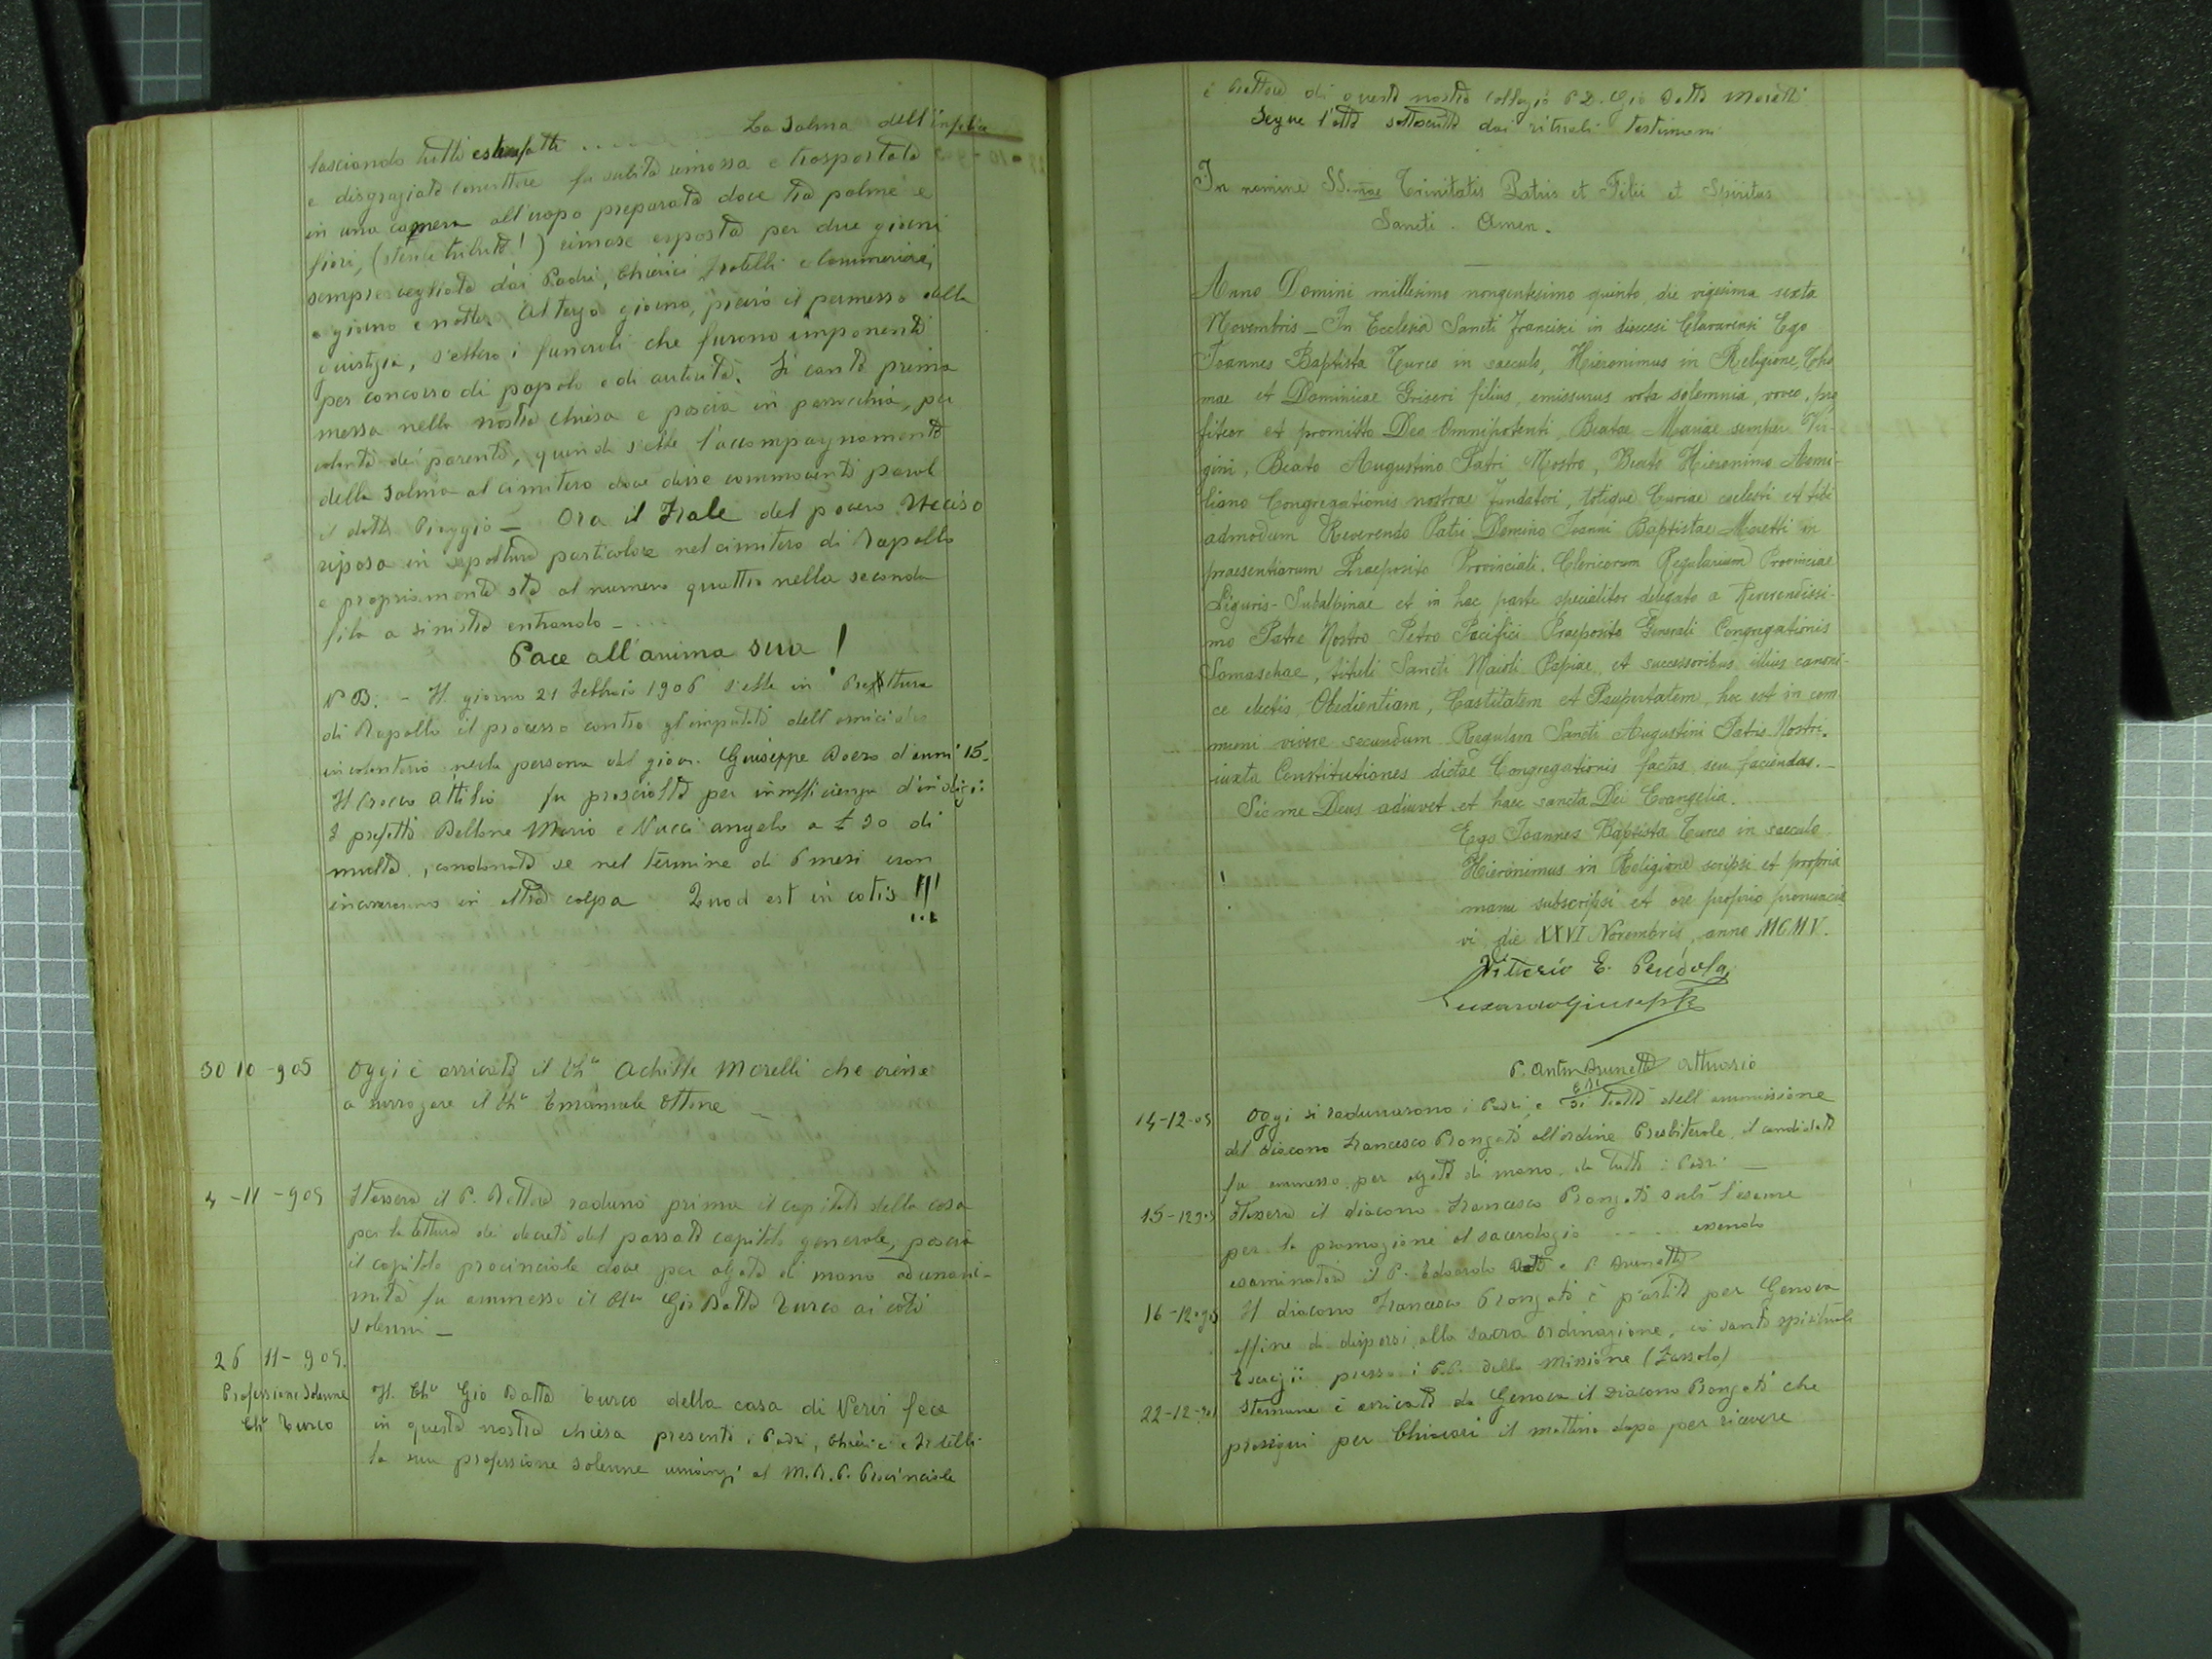 lasciando tutti estrefatti ... La Salma dell'infelice
e disgraziato convittore fu subito rimossa e trasportata
in una camera all'uopo preparata dove tra palme e
fiori, (sterile tributo!) rimase esposta per due giorni
sempre vegliata dai Padri, Chierici Fratelli e Commercianti,
e giorno e notte. Al terzo giorno, previo il permesso della
giustizia, s'ebbero i funerali che furono imponenti
per concorso di popolo e di autorità. Si cantò prima
messa nella nostra chiesa e poscia in parrocchia, per
volontà dei parenti, quindi s'ebbe l'accompagnamento
della Salma al cimitero dove disse commoventi parole
il dottr Piaggio — Ora il Frale del povero Ucciso
riposa in sepoltura particolare nel cimitero di Rapallo
e propriamente sta al numero quattro nella seconda
fila a sinistra entrando — ...
Pace all'anima sua!
N B. — Il giorno 21 Febbraio 1906 s'ebbe in Prettura
di Rapallo il processo contro gl'imputati dell'omicidio
involontario nella persona del giov. Giuseppe Boero d'anni 15.
Il Crocco Attilio fu prosciolto per insufficienza d'indizi:
I prefetti Bellone Mario e Nucci Angelo a £ 30 di
multa, condonata se nel termine di 6 mesi non
incorreranno in altra colpa Quod est in votis!!!
30 10 - 905 Oggi è arrivato il Chco Achille Morelli che viene
a surrogare il Chco Emanuele Ottone —
4 - 11 - 905 Stassera il P. Rettore radunò prima il capitolo della casa
per la lettura dei decreti del passato capitolo generale, poscia
il capitolo provinciale dove per alzata di mano ad unani-
mità fu ammesso il Chco Gio Batta Turco ai voti
solenni —
26 11 - 905.
Professione Solenne
Chco Turco
Il Chco Gio Batta Turco della casa di Nervi fece
in questa nostra chiesa presenti i Padri, Chierici e Fratelli
la sua professione solenne innanzi al M. R. P. Provinciale
e Rettore di questo nostro Collegio P. D. Gio Batta Moretti
Segue l'atto sottoscritto dai rituali testimoni
In nomine SSmae Trinitatis Patris et Filii et Spiritus
Sancti. Amen.
Anno Domini millesimo nongentesimo quinto, die vigesima sexta
Novembris — In Ecclesia Sancti Francisci in dioecesi Clavarensi Ego
Joannes Baptista Turco in saeculo, Hieronimus in Religione, Tho
mae et Dominicae Griseri filius, emissurus vota solemnia, voveo, pro
fiteor et promitto Deo Omnipotenti, Beatae Mariae semper Vir-
gini, Beato Augustino Patri Nostro, Beato Hieronimo Aemi-
liano Congregationis nostrae fundatori, totique Curiae coelesti et tibi
admodum Reverendo Patri Domino Joanni Baptistae Moretti in
praesentiarum Praeposito Provinciali Clericorum Regularium Provinciae
Liguris-Subalpinae et in hac parte specialiter delegato a Reverendissi-
mo Patre Nostro Petro Pacifici Praeposito Generali Congregationis
Somaschae, tituli Sancti Maioli Papiae, et successoribus illius canoni-
ce electis, Obedientiam, Castitatem et Paupertatem, hoc est in com
muni vivere secundum Regulam Sancti Augustini Patris Nostri.
iuxta Constitutiones dictae Congregationis factas seu faciendas. —
Sic me Deus adiuvet et haec sancta Dei Evangelia.
Ego Joannes Baptista Turco in saeculo
Hieronimus in Religione scripsi et propria
manu subscripsi et ore proprio pronuncia
vi die XXVI Novembris, anno MCMV.
Vittorio E. Pendola
Luxardo Giuseppe
P. Antn Brunetti Attuario
14-12-05 Oggi si radunarono i Padri, e si trattò dell'ammissione
del diacono Francesco Prongati all'ordine Presbiterale, il candidato
fu ammesso per alzata di mano da tutti i Padri —
15-12 905 Stassera il diacono Francesco Prongati subì l'esame
per la promozione al sacerdozio .... essendo
esaminatori il P. Edoardo e P. Brunetti
16-12-905 Il diacono Francesco Prongati è partito per Genova
affine di disporsi alla Sacra Ordinazione, coi santi spirituali
Esercizii presso i P.P. della Missione (Fassolo)
22-12-905 Stamane è arrivato da Genova il Diacono Prongati che
proseguì per Chiavari il mattino dopo per ricevere